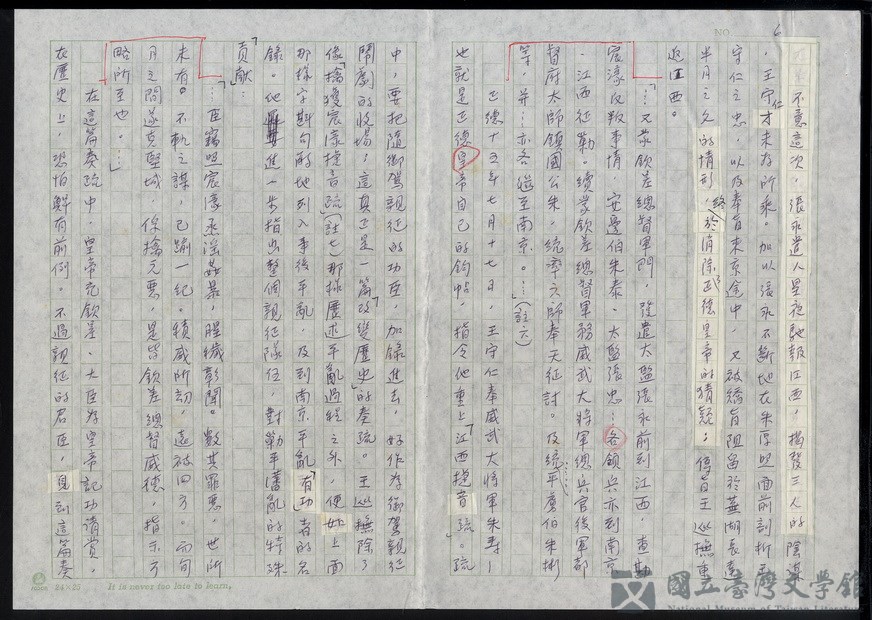 不意這次，張永遣人星夜馳報江西，揭發三人的陰謀
，王守仁才未為所乘。加以張永不斷地在朱厚照面前剖析王
守仁之忠，以及奉旨來京途中，又被矯旨阻留於蕪湖長達
半月之久的情形，終於消除正德皇帝的猜疑；傳旨王巡撫重
返江西。
「…又蒙欽差總督軍門，發遣太監張永前到江西，查勘
宸濠反叛事情，安邊伯朱泰、太監張忠…各領兵亦到南京
、江西征勦。續蒙欽差總督軍務威武大將軍總兵官後軍都
督府太師鎮國公朱，統率六師奉天征討。及統…平虜伯朱彬
等，并…亦各繼至南京。…」(註六)
正德十五年七月十七日，王守仁奉威武大將軍朱壽——
也就是正德皇帝自己的鈞帖，指令他重上「江西捷音疏」。疏
中，要把隨御駕親征的功臣，加錄進去，好作為御駕親征
鬧劇的收場；這真正是一篇「改變歷史」的奏疏。王巡撫除了
像「擒獲宸濠捷音疏」(註七)那樣歷述平亂過程之外，便如上面
那樣字斟句酌地列入事後平亂，及到南京平亂「有功」者的名
錄。他進一步指出整個親征隊伍，對勦平藩亂的特殊
「貢獻」：
「…臣竊照宸濠烝淫姦暴，腥穢彰聞。數其罪惡，世所
未有。不軌之謀，已踰一紀。積威所刼，遠被四方。而旬
月之間遂克堅城，俘擒元惡，是皆欽差總督威德，指示方
略所至也。…」
在這篇奏疏中，皇帝充欽差、大臣為皇帝記功請賞，
在歷史上，恐怕鮮有前例。不過親征的君臣，見到這篇奏
24×25
It is never too late to learn.
NO
6
國立臺灣文學館
National Museum of Taiwan Literature